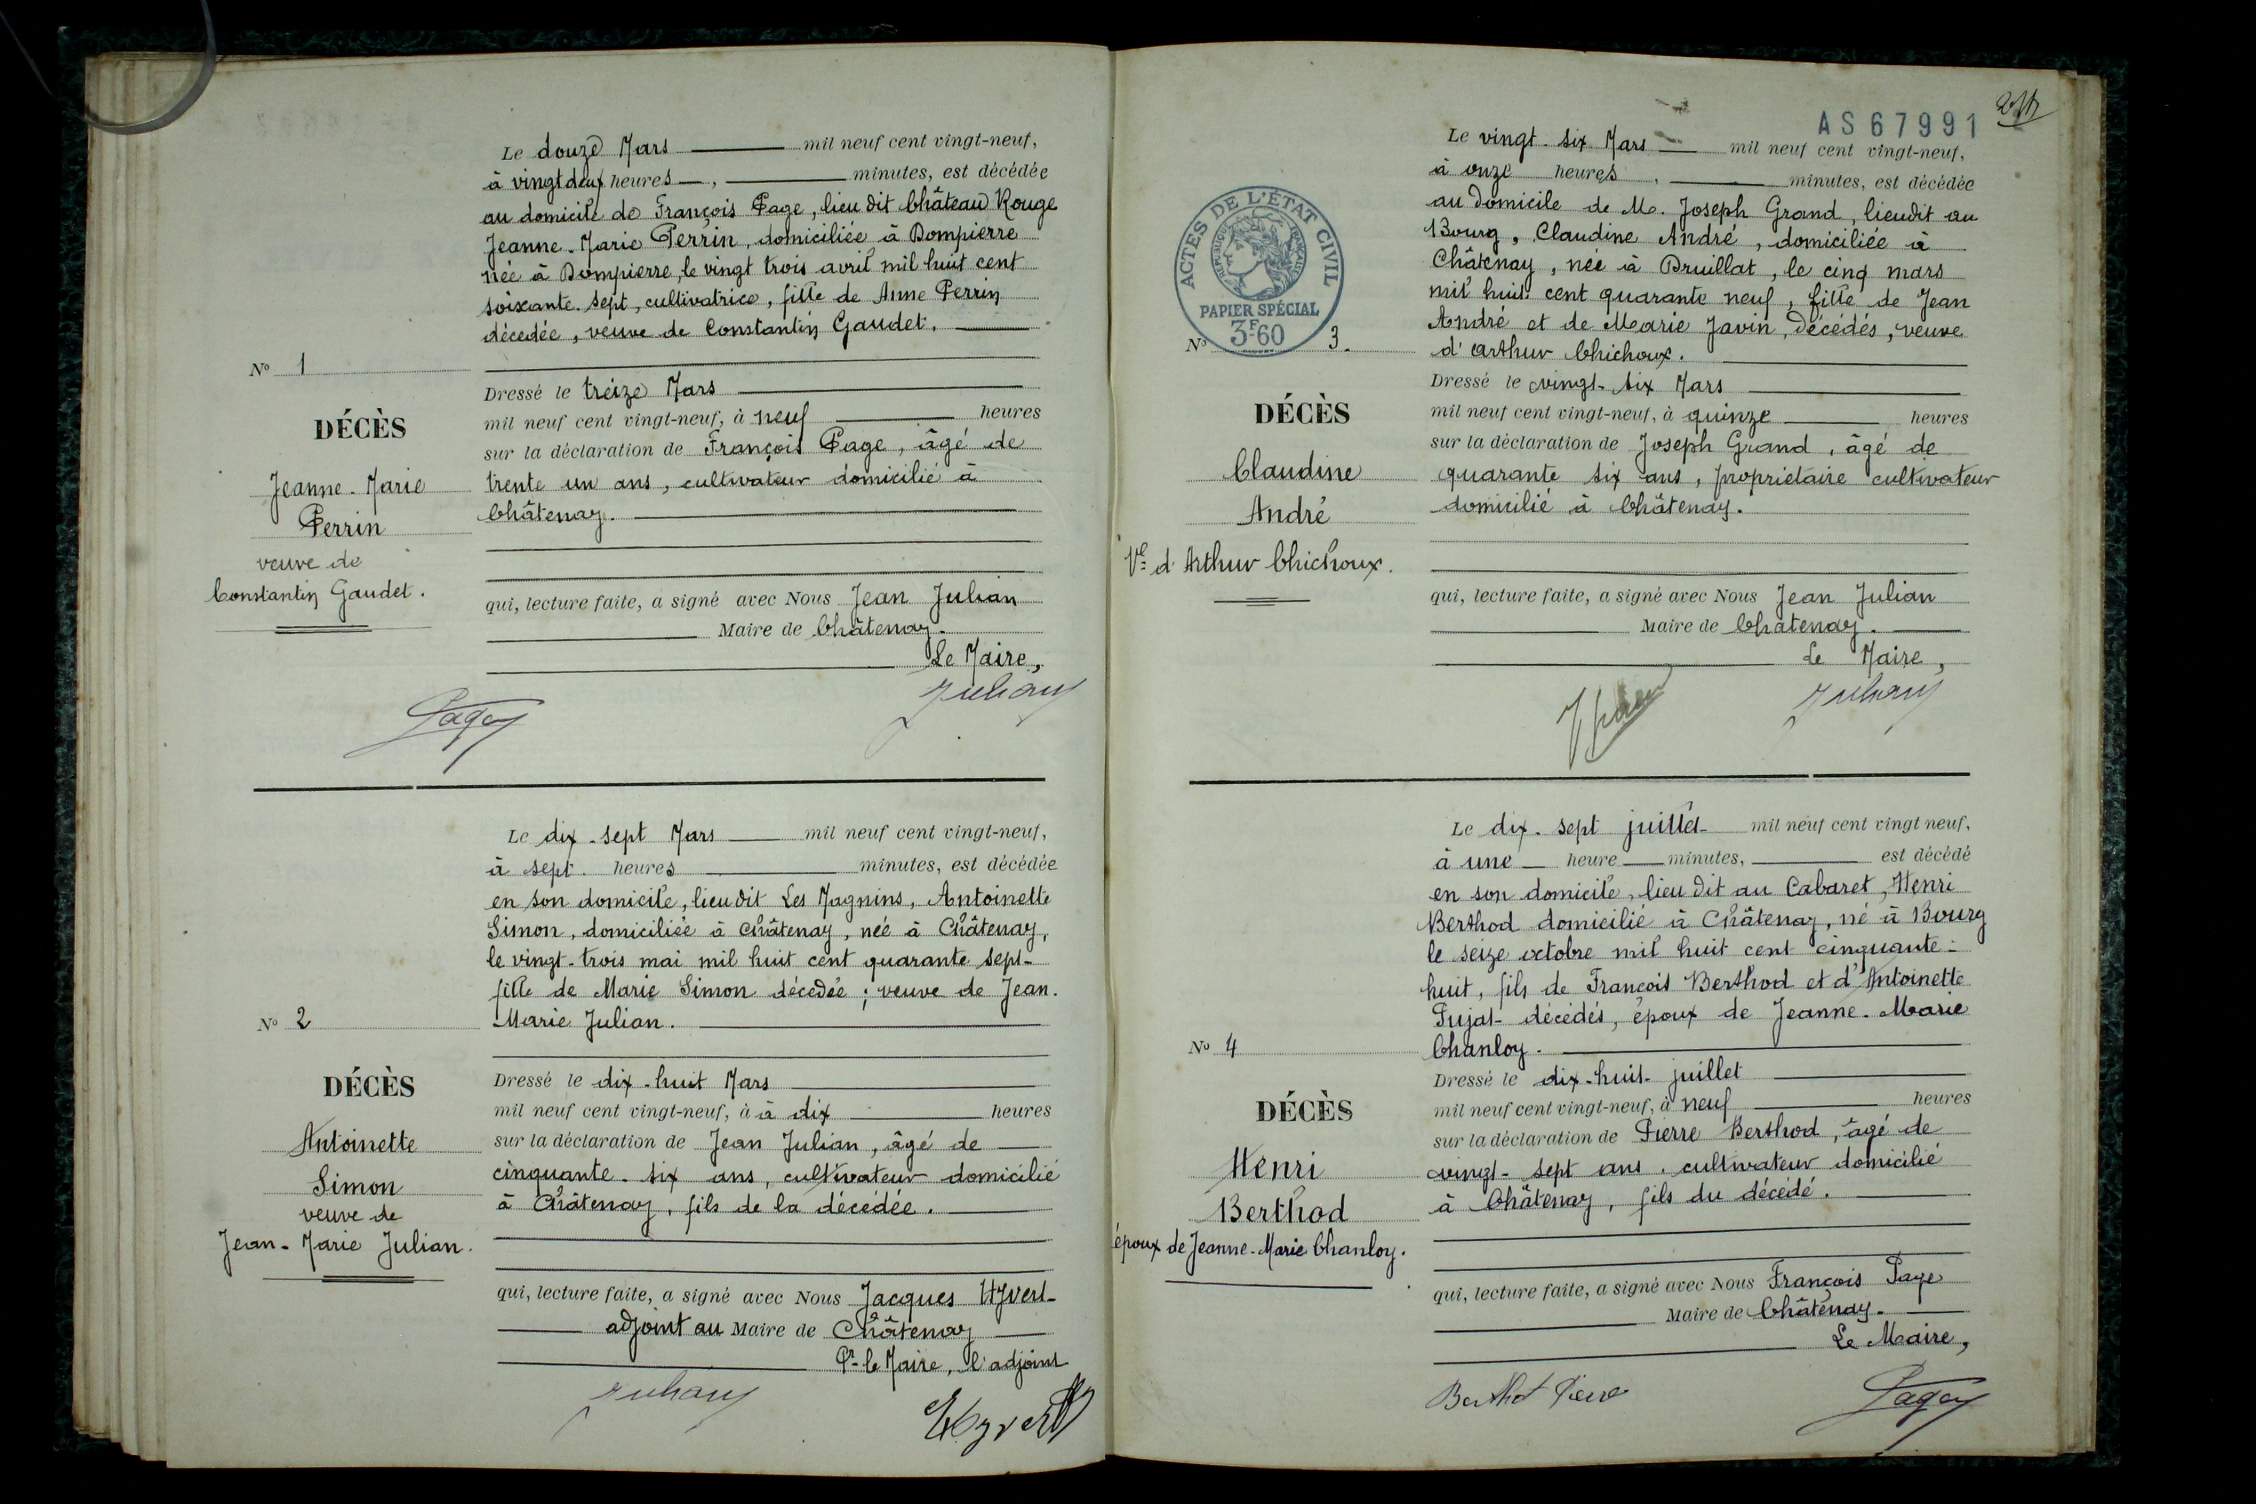 Le douze Mars mil neuf cent vingt-neuf,
à vingt deux heures, minutes, est décédée
au domicile de François Page, lieu dit Château Rouge
Jeanne-Marie Perrin, domiciliée à Dompierre
née à Dompierre, le vingt trois avril mil huit cent
soixante-sept, cultivatrice, fille de Anne Perrin
décédée, veuve de Constantin Gaudet.
N° 1
DÉCÈS
Jeanne-Marie
Perrin
veuve de
Constantin Gaudet.
Dressé le treize Mars
mil neuf cent vingt-neuf, à neuf heures
sur la déclaration de François Page, âgé de
trente un ans, cultivateur domicilié à
Châtenay.
qui, lecture faite, a signé avec Nous Jean Julian
Maire de Châtenay.
Le Maire,
Page
Julian
Le dix-sept Mars mil neuf cent vingt-neuf,
à sept heures minutes, est décédée
en son domicile, lieu dit Les Magnins, Antoinette
Simon, domiciliée à Châtenay, née à Châtenay,
le vingt-trois mai mil huit cent quarante sept-
fille de Marie Simon décédée ; veuve de Jean-
Marie Julian.
N° 2
DÉCÈS
Antoinette
Simon
veuve de
Jean-Marie Julian.
Dressé le dix-huit Mars
mil neuf cent vingt-neuf, à à dix heures
sur la déclaration de Jean Julian, âgé de
cinquante-six ans, cultivateur domicilié
à Châtenay, fils de la décédée.
qui, lecture faite, a signé avec Nous Jacques Hyvert
adjoint au Maire de Châtenay
Pr le Maire, l'adjoint
Julian
Hyvert
AS67991
ACTES DE L'ÉTAT CIVIL
RÉPUBLIQUE FRANÇAISE
PAPIER SPÉCIAL
3F60
Le vingt-six Mars mil neuf cent vingt-neuf,
à onze heures, minutes, est décédée
au domicile de M. Joseph Grand, lieudit au
Bourg, Claudine André, domiciliée à
Châtenay, née à Druillat, le cinq mars
mil huit cent quarante neuf, fille de Jean
André et de Marie Javin, décédés, veuve
d'Arthur Chichoux.
N° 3.
DÉCÈS
Claudine
André
Ve d'Arthur Chichoux.
Dressé le vingt-six Mars
mil neuf cent vingt-neuf, à quinze heures
sur la déclaration de Joseph Grand, âgé de
quarante six ans, propriétaire cultivateur
domicilié à Châtenay.
qui, lecture faite, a signé avec Nous Jean Julian
Maire de Châtenay.
Le Maire,
Julian
Le dix-sept juillet mil neuf cent vingt neuf,
à une heure minutes, est décédé
en son domicile, lieu dit au Cabaret, Henri
Berthod domicilié à Châtenay, né à Bourg
le seize octobre mil huit cent cinquante-
huit, fils de François Berthod et d'Antoinette
Pujat décédés, époux de Jeanne-Marie
Chanloy.
N° 4
DÉCÈS
Henri
Berthod
époux de Jeanne-Marie Chanloy.
Dressé le dix-huit juillet
mil neuf cent vingt-neuf, à neuf heures
sur la déclaration de Pierre Berthod, âgé de
vingt-sept ans, cultivateur domicilié
à Châtenay, fils du décédé.
qui, lecture faite, a signé avec Nous François Page
Maire de Châtenay.
Le Maire,
Berthod Pierre
Page